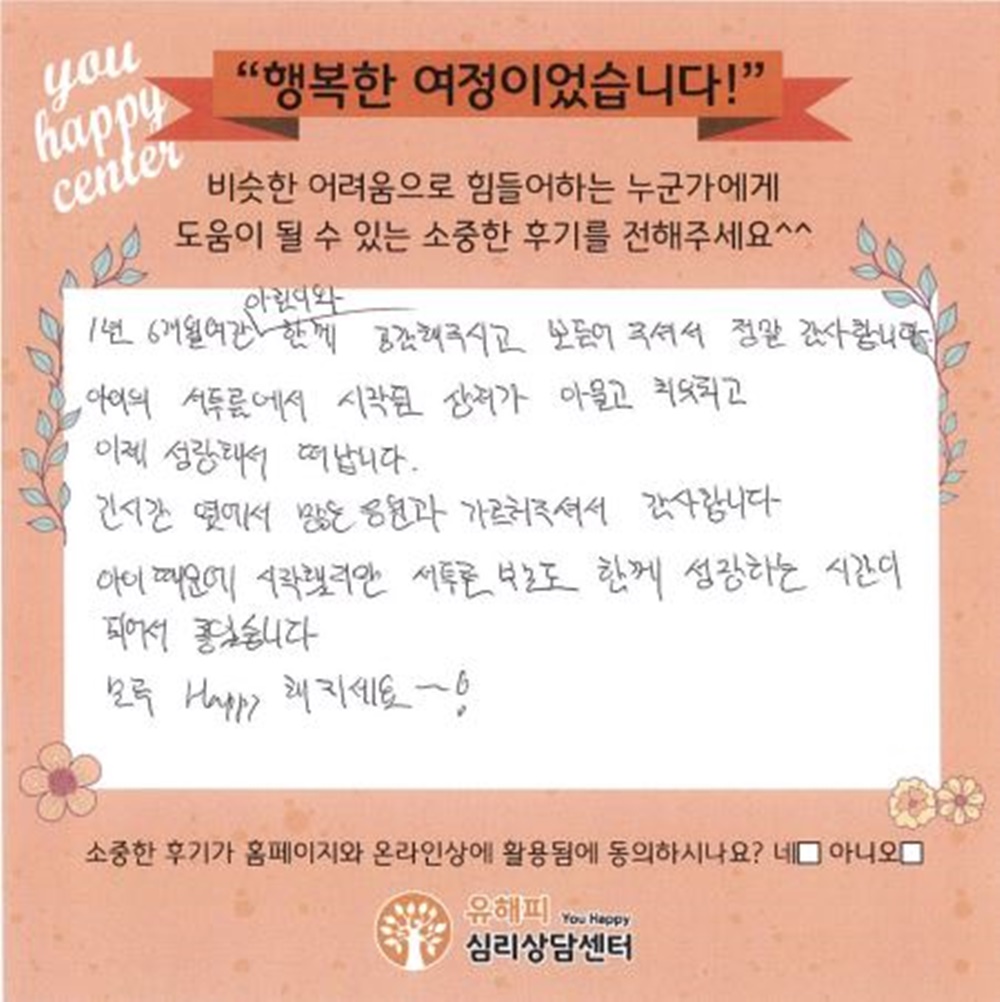 you
happy
center
“행복한 여정이었습니다!”
비슷한 어려움으로 힘들어하는 누군가에게
도움이 될 수 있는 소중한 후기를 전해주세요^^
어린이와
1년 6개월여간 함께 공감해주시고 보듬어 주셔서 정말 감사합니다
아이의 서투름에서 시작된 상처가 아물고 치유되고
이제 성장해서 떠납니다.
긴시간 옆에서 많은 응원과 가르쳐주셔서 감사합니다
아이 때문에 시작했지만 서투른 부모도 함께 성장하는 시간이
되어서 좋았습니다
모두 Happy 해지세요~!
소중한 후기가 홈페이지와 온라인상에 활용됨에 동의하시나요? 네□ 아니오□
유해피 You Happy
심리상담센터